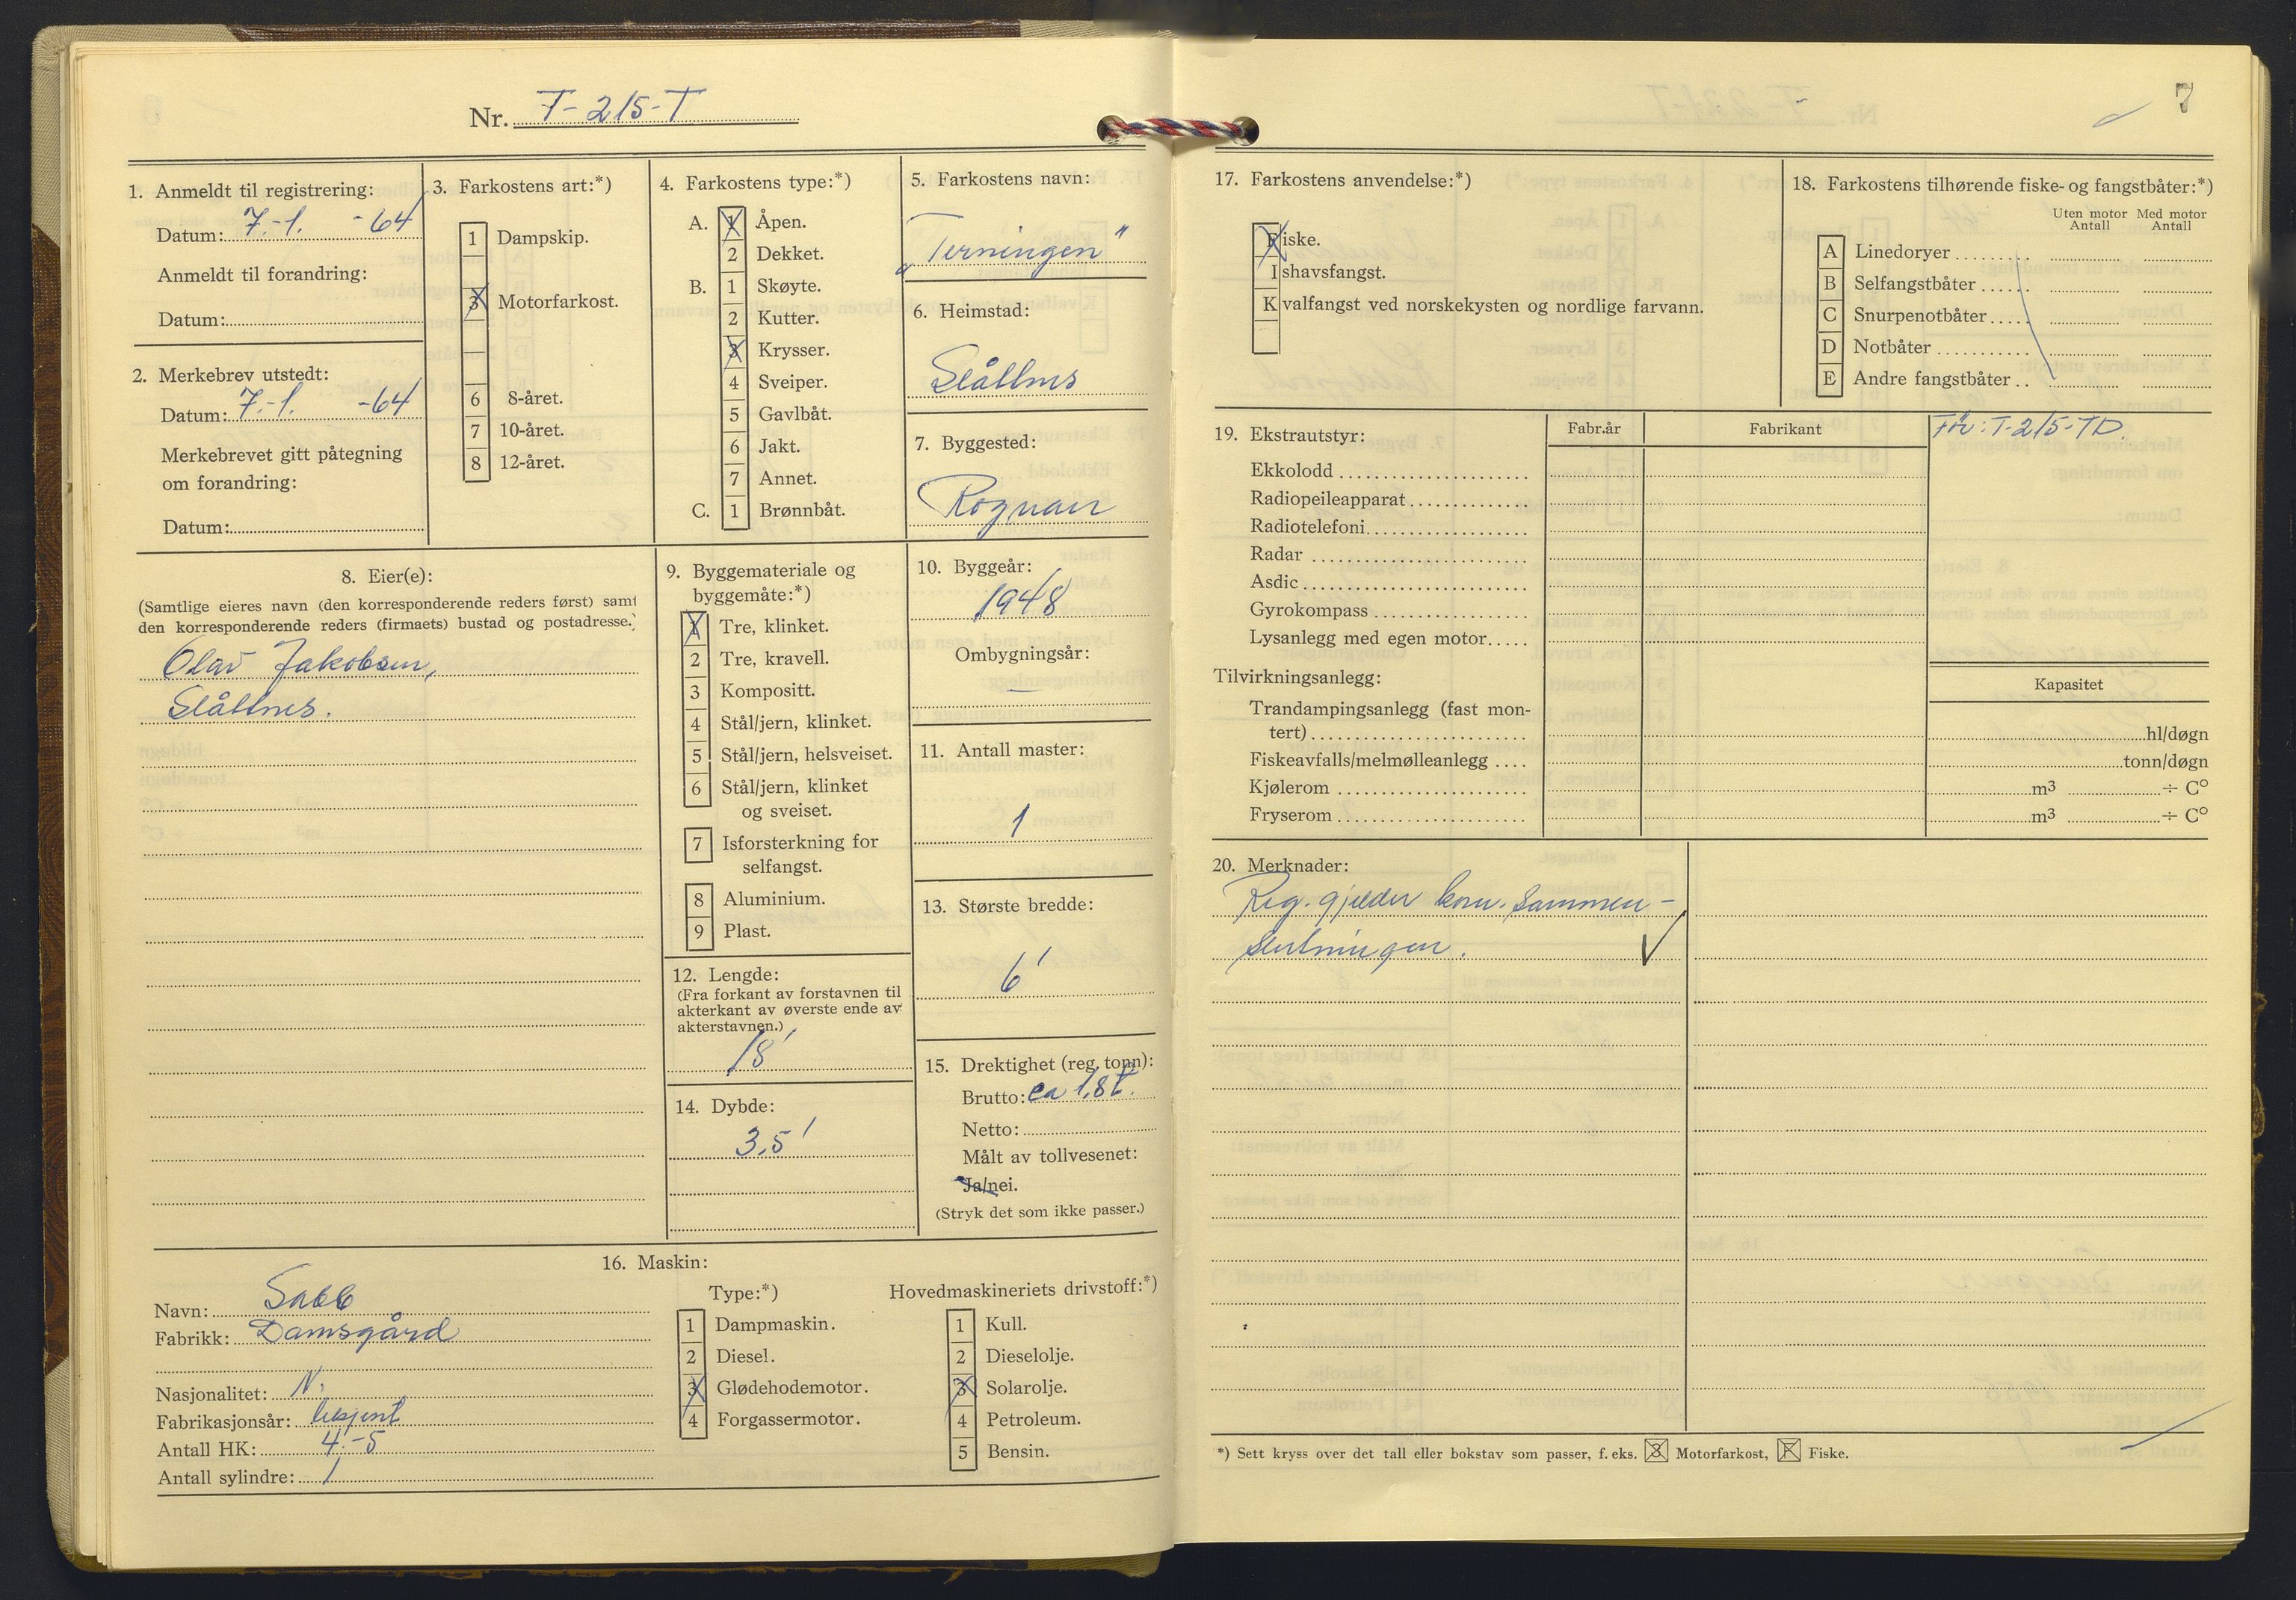 Nr. T-215-T
1. Anmeldt til registrering:
Datum: 7.-1. -64
Anmeldt til forandring:
Datum:
2. Merkebrev utstedt:
Datum: 7.-1. -64
Merkebrevet gitt påtegning
om forandring:
Datum:
3. Farkostens art:*)
1 Dampskip.
3 Motorfarkost.
6 8-året.
7 10-året.
8 12-året.
4. Farkostens type:*)
A. 1 Åpen.
2 Dekket.
B. 1 Skøyte.
2 Kutter.
3 Krysser.
4 Sveiper.
5 Gavlbåt.
6 Jakt.
7 Annet.
C. 1 Brønnbåt.
5. Farkostens navn:
„Terningen"
6. Heimstad:
Slåttnes
7. Byggested:
Rognan
8. Eier(e):
(Samtlige eieres navn (den korresponderende reders først) samt
den korresponderende reders (firmaets) bustad og postadresse.)
Olav Jakobsen,
Slåttnes.
9. Byggemateriale og
byggemåte:*)
1 Tre, klinket.
2 Tre, kravell.
3 Kompositt.
4 Stål/jern, klinket.
5 Stål/jern, helsveiset.
6 Stål/jern, klinket
og sveiset.
7 Isforsterkning for
selfangst.
8 Aluminium.
9 Plast.
10. Byggeår:
1948
Ombygningsår:
—
11. Antall master:
1
12. Lengde:
(Fra forkant av forstavnen til
akterkant av øverste ende av
akterstavnen.)
18'
13. Største bredde:
6'
14. Dybde:
3,5'
15. Drektighet (reg. tonn):
Brutto: ca 1,8 t.
Netto:
Målt av tollvesenet:
Ja/nei.
(Stryk det som ikke passer.)
16. Maskin:
Navn: Sabb
Fabrikk: Damsgård
Nasjonalitet: N.
Fabrikasjonsår: ukjent
Antall HK: 4-5
Antall sylindre: 1
Type:*)
1 Dampmaskin.
2 Diesel.
3 Glødehodemotor.
4 Forgassermotor.
Hovedmaskineriets drivstoff:*)
1 Kull.
2 Dieselolje.
3 Solarolje.
4 Petroleum.
5 Bensin.
7
17. Farkostens anvendelse:*)
Fiske.
Ishavsfangst.
Kvalfangst ved norskekysten og nordlige farvann.
18. Farkostens tilhørende fiske- og fangstbåter:*)
Uten motor Med motor
Antall Antall
A Linedoryer
B Selfangstbåter
C Snurpenotbåter
D Notbåter
E Andre fangstbåter
19. Ekstrautstyr:
Fabr.år Fabrikant
Før: T-215-TD.
Ekkolodd
Radiopeileapparat
Radiotelefoni
Radar
Asdic
Gyrokompass
Lysanlegg med egen motor
Tilvirkningsanlegg:
Kapasitet
Trandampingsanlegg (fast mon-
tert) hl/døgn
Fiskeavfalls/melmølleanlegg tonn/døgn
Kjølerom m³ ÷ C°
Fryserom m³ ÷ C°
20. Merknader:
Reg. gjelder kom. sammen-
slutningen.
*) Sett kryss over det tall eller bokstav som passer, f. eks. 3 Motorfarkost, F Fiske.